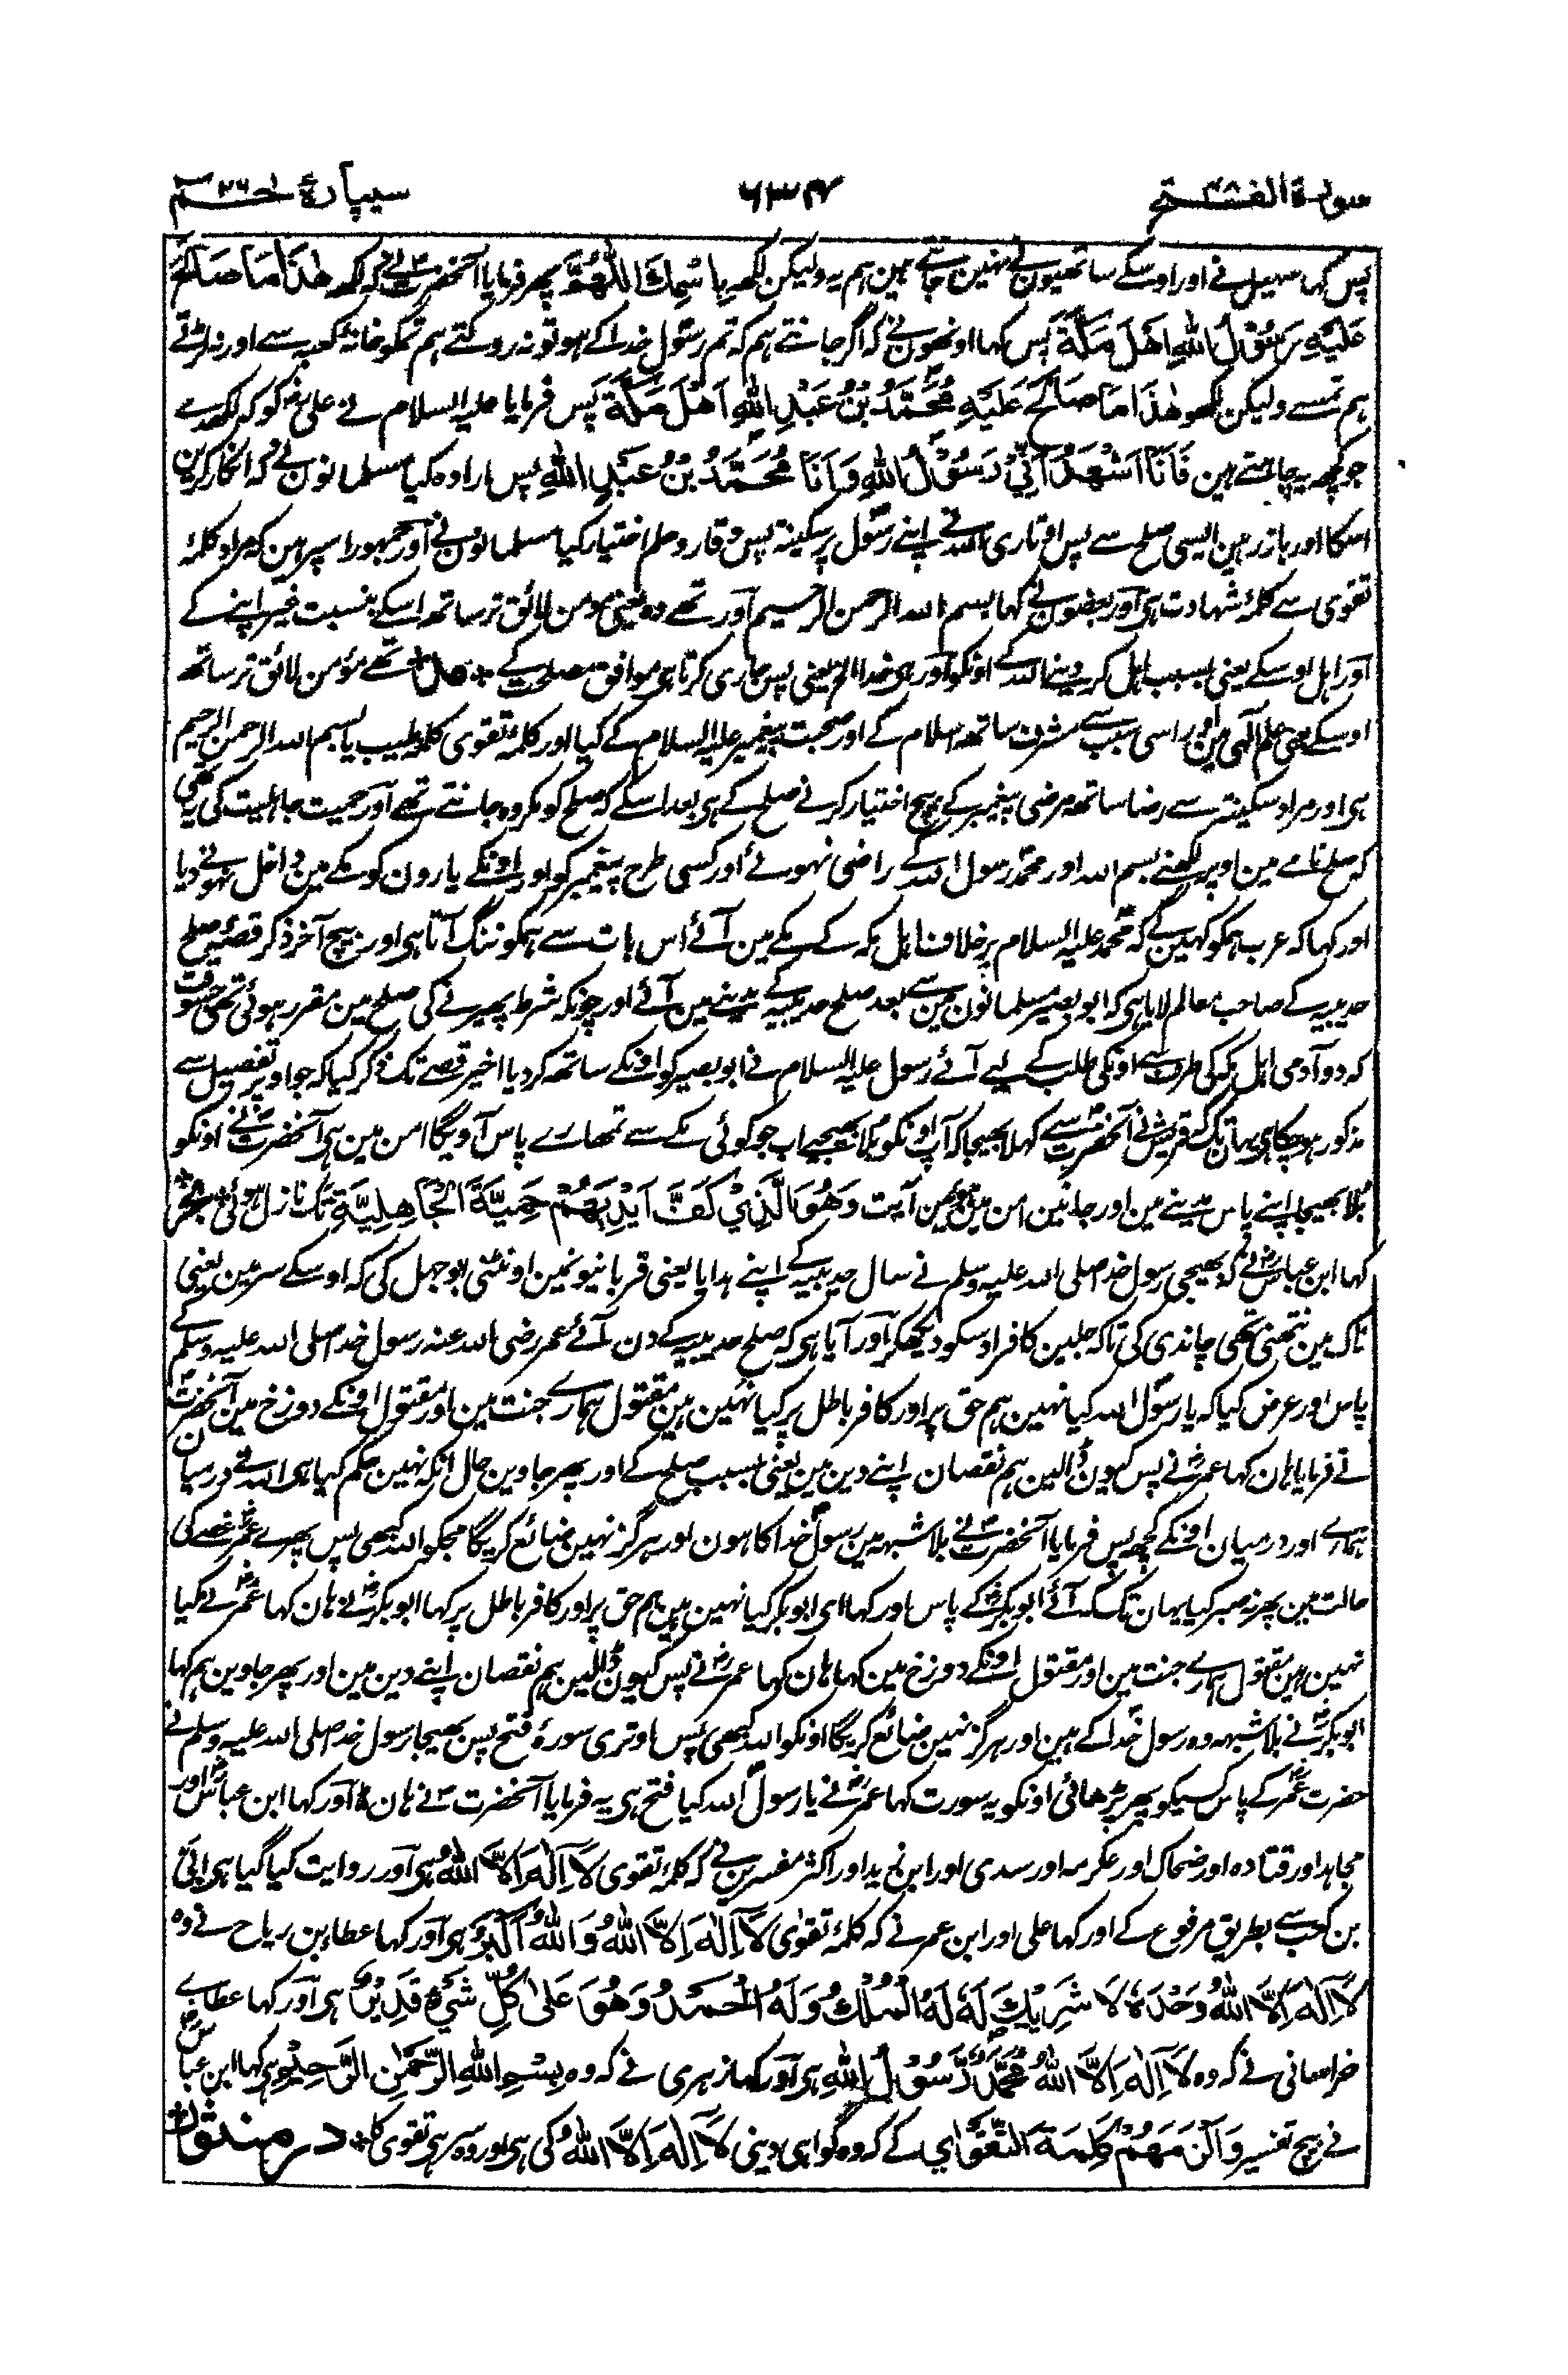 سورۃ الفتح ۴۸
۶۳۴
سیپارۂ حٰم ۲۶
پس کہا سہیل نے اور اوسکے ساتھیون نے نہین جانتے ہین ہم یہ ولیکن لکھہ بِاسْمِكَ اللّٰهُمَّ پھر فرمایا آنحضرتؐ نے کہ لکھہ هٰذَا مَا صَالَحَ
عَلَيْهِ رَسُوْلُ اللّٰهِ اَهْلَ مَكَّةَ پس کہا اونھون نے کہ اگر جانتے ہم کہ تم رسول خدا کے ہو تو نہ روکتے ہم تمکو خانۂ کعبہ سے اور نہ لڑتے
ہم تمسے ولیکن لکھو هٰذَا مَا صَالَحَ عَلَيْهِ مُحَمَّدُ بْنُ عَبْدِ اللّٰهِ اَهْلَ مَكَّةَ پس فرمایا علیہ السلام نے علیؓ کو کہ لکھدے
جو کچھہ یہ چاہتے ہین فَاَنَا اَشْهَدُ اَنِّيْ رَسُوْلُ اللّٰهِ وَاَنَا مُحَمَّدُ بْنُ عَبْدِ اللّٰهِ پس ارادہ کیا مسلمانون نے کہ انکار کرین
اسکا اور باز رہین ایسی صلح سے پس اوتاری اللہ نے اپنے رسول پر سکینۃ پس وقار و حلم اختیار کیا مسلمانون نے اور جمہور اسپر ہین کہ مراد کلمۂ
تقوی سے کلمۂ شہادت ہی اور بعضون نے کہا بسم اللہ الرحمن الرحیم اور تھے وہ یعنی مومن لائق تر ساتھہ اسکے بنسبت غیر اپنے کے
اور اہل اوسکے یعنی بسبب اہل کر دینے اللہ کے اونکو اور ہی خدا الخ یعنی پس جاری کرتا ہی موافق مصلحت کے * تھے مؤمن لائق تر ساتھہ
اوسکے بھی علم آلٰہی مین اور اسی سبب سے مشرف ساتھہ اسلام کے اور صحبت پیغمبر علیہ السلام کے کیا اور کلمۂ تقوی کلمۂ طیب یا بسم اللہ الرحمن الرحیم
ہی اور مراد سکینۃ سے رضا ساتھہ مرضی پیغمبر کے بیچ اختیار کرنے صلح کے ہی بعد اسکے کہ صلح کو مکروہ جانتے تھے اور حمیت جاہلیت کی یہ تھی
کہ صلح نامے مین اوپر لکھنے بسم اللہ اور محمد رسول اللہ کے راضی نہوئے اور کسی طرح پیغمبر کو اور اونکے یارون کو مکے مین داخل نہونے دیا
اور کہا کہ عرب ہمکو کہین گے کہ محمد علیہ السلام برخلاف اہل مکہ کے مکے مین آئے اس بات سے ہمکو ننگ آتا ہی اور بیچ آخر ذکر قصۂ صلح
حدیبیہ کے صاحب معالم لایا ہی کہ ابو بصیر مسلمانون مین سے بعد صلح حدیبیہ کے مدینے مین آئے اور چونکہ شرط پھیرنے کی صلح مین مقرر ہوئی تھی جسوقت
کہ دو آدمی اہل مکہ کی طرف سے اونکی طلب کے لیے آئے رسول علیہ السلام نے ابو بصیر کو اونکے ساتھہ کر دیا اخیر قصے تک ذکر کیا کہ جو اوپر تفصیل سے
مذکور ہو چکا ہی یہانتک کہ قریش نے آنحضرتؐ سے کہلا بھیجا کہ آپ اونکو بلا بھیجیے اب جو کوئی مکے سے تمھارے پاس آویگا امن مین ہی آنحضرتؐ نے اونکو
بلا بھیجا اپنے پاس مدینے مین اور جانبین امن مین ہوئے آیت وَهُوَ الَّذِيْ كَفَّ اَيْدِيَهُمْ حَمِيَّةَ الْجَاهِلِيَّةِ تک نازل ہوئی
کہا ابن عباسؓ نے کہ بھیجی رسول خدا صلی اللہ علیہ وسلم نے سال حدیبیہ کے اپنے ہدایا یعنی قربانیونمین اونٹنی ابو جہل کی کہ اوسکے سر مین یعنی
ناک مین نتھنی تھی چاندی کی تاکہ جلین کافر اوسکو دیکھکر اور آیا ہی کہ صلح حدیبیہ کے دن آئے عمر رضی اللہ عنہ رسول خدا صلی اللہ علیہ وسلم کے
پاس اور عرض کیا کہ یا رسول اللہ کیا نہین ہم حق پر اور کافر باطل پر کیا نہین ہین مقتول ہمارے جنت مین اور مقتول اونکے دوزخ مین آنحضرتؐ
نے فرمایا ہان کہا عمرؓ نے پس کیون ڈالین ہم نقصان اپنے دین مین یعنی بسبب صلح کے اور پھر جاوین حال آنکہ نہین حکم کیا ہی اللہ نے درمیان
ہمارے اور درمیان اونکے کچھہ پس فرمایا آنحضرتؐ نے بلا شبہہ مین رسول خدا کا ہون اور ہرگز نہین ضائع کریگا مجکو اللہ کبھی پس پھرے عمرؓ غصے کی
حالت مین پھر نہ صبر کیا یہان تک کہ آئے ابو بکرؓ کے پاس اور کہا ای ابو بکر کیا نہین ہین ہم حق پر اور کافر باطل پر کہا ابو بکرؓ نے ہان کہا عمرؓ نے کیا
نہین ہین مقتول ہمارے جنت مین اور مقتول اونکے دوزخ مین کہا ہان کہا عمرؓ نے پس کیون ڈالین ہم نقصان اپنے دین مین اور پھر جاوین ہم کہا
ابو بکرؓ نے بلا شبہہ وہ رسول خدا کے ہین اور ہرگز نہین ضائع کریگا اونکو اللہ کبھی پس اوتری سورۂ فتح پس بھیجا رسول خدا صلی اللہ علیہ وسلم نے
حضرت عمرؓ کے پاس کسیکو پھر پڑھائی اونکو یہ سورت کہا عمرؓ نے یا رسول اللہ کیا فتح ہی یہ فرمایا آنحضرتؐ نے ہان * اور کہا ابن عباسؓ اور
مجاہد اور قتادہ اور ضحاک اور عکرمہ اور سدی اور ابن زید اور اکثر مفسرین نے کہ کلمۂ تقوی لَا اِلٰهَ اِلَّا اللّٰهُ ہی اور روایت کیا گیا ہی ابی
بن کعب سے بطریق مرفوع کے اور کہا علی اور ابن عمر نے کہ کلمۂ تقوٰی لَا اِلٰهَ اِلَّا اللّٰهُ وَاللّٰهُ اَكْبَرُ ہی اور کہا عطاء بن رباح نے وہ
لَا اِلٰهَ اِلَّا اللّٰهُ وَحْدَهٗ لَا شَرِيْكَ لَهٗ لَهُ الْمُلْكُ وَلَهُ الْحَمْدُ وَهُوَ عَلٰى كُلِّ شَيْءٍ قَدِيْرٌ ہی اور کہا عطاے
خراسانی نے کہ وہ لَا اِلٰهَ اِلَّا اللّٰهُ مُحَمَّدٌ رَّسُوْلُ اللّٰهِ ہی اور کہا زہری نے کہ وہ بِسْمِ اللّٰهِ الرَّحْمٰنِ الرَّحِيْمِ ہی کہا ابن عباسؓ
نے بیچ تفسیر وَاَلْزَمَهُمْ كَلِمَةَ التَّقْوٰي کے کہ وہ گواہی دینی لَا اِلٰهَ اِلَّا اللّٰهُ کی ہی اور وہ سر ہی تقوی کا * در منثور *